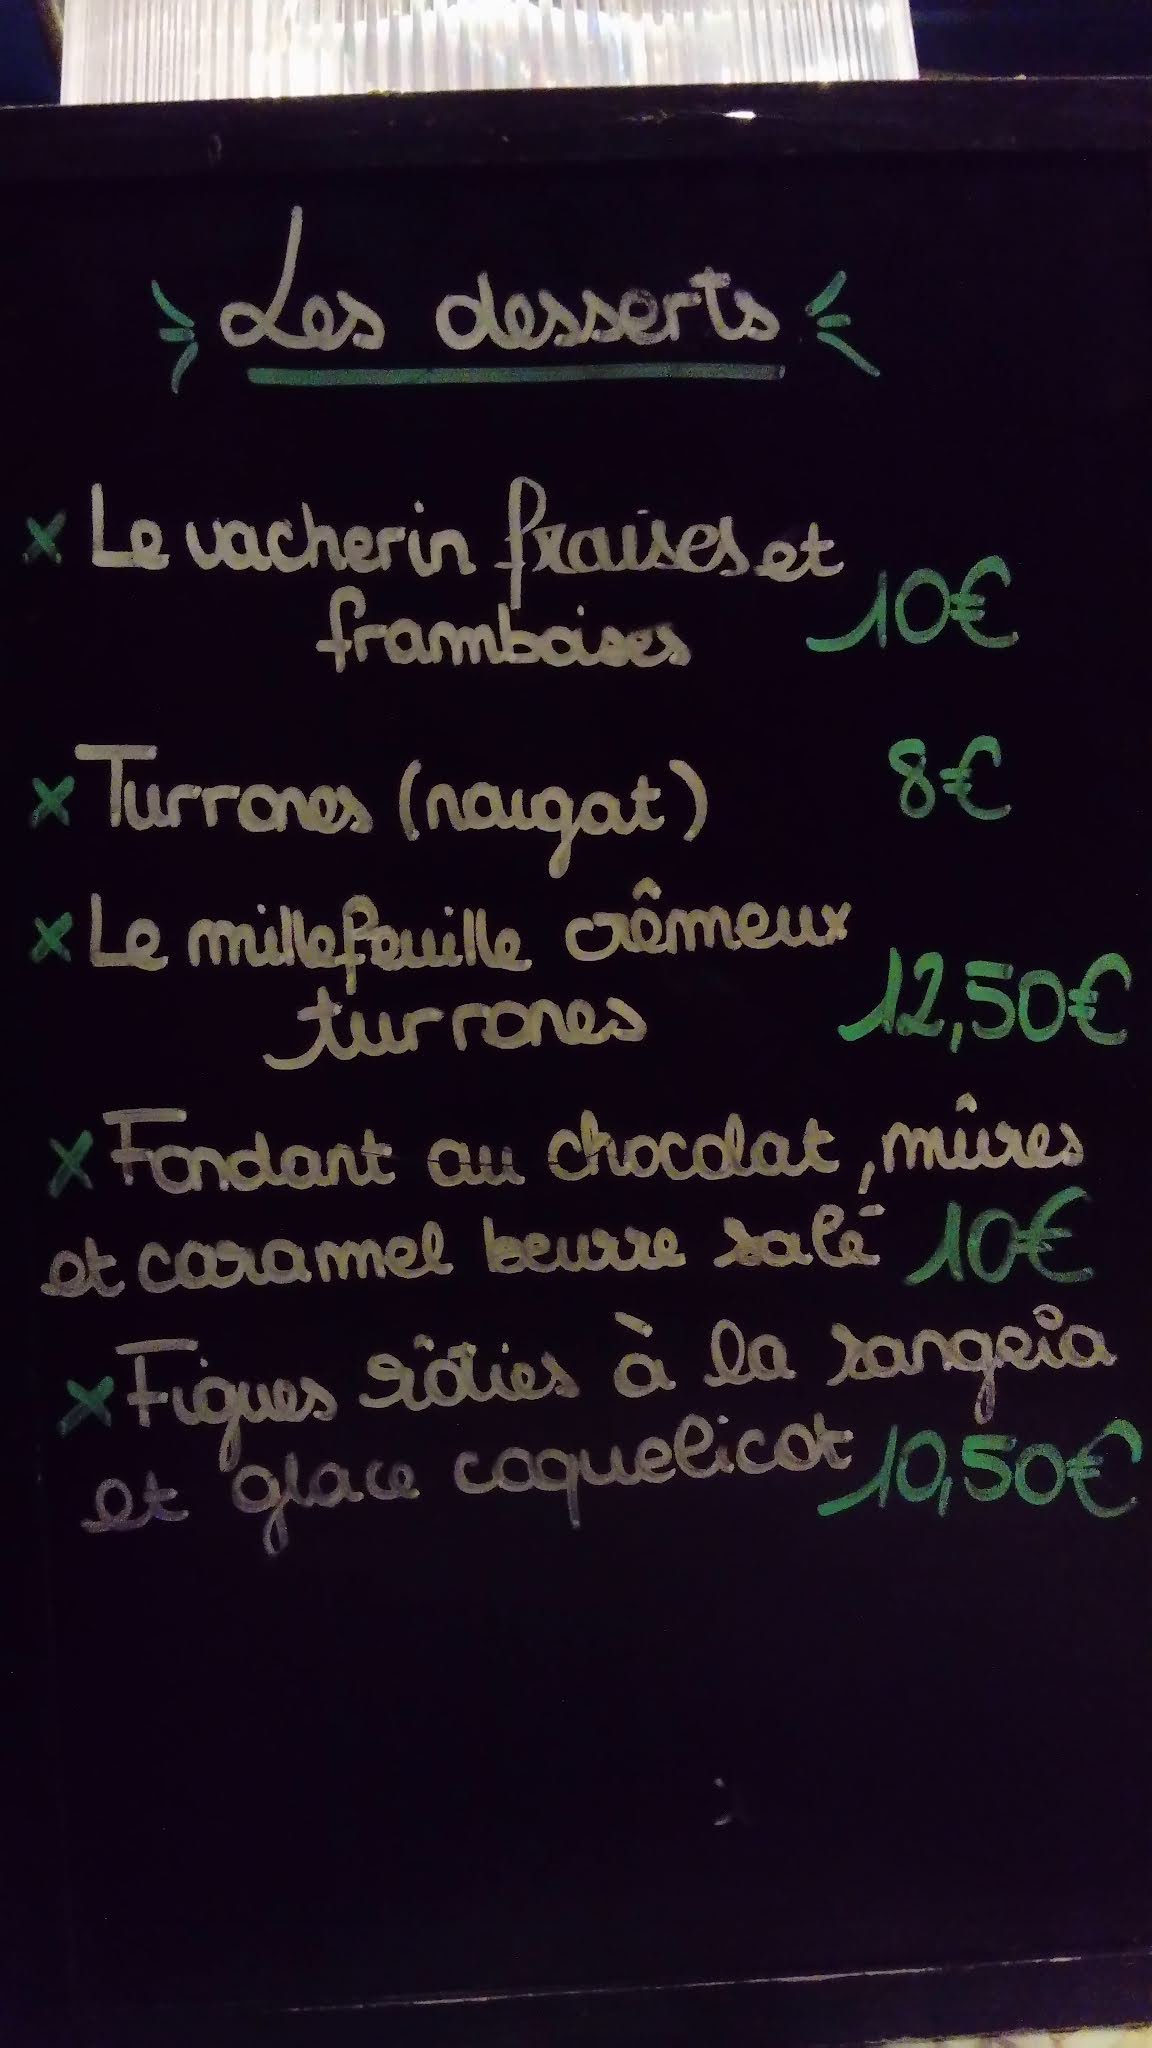 Les desserts
x Le vacherin fraises et
framboises 10€
x Turrones (nougat) 8€
x Le millefeuille crêmeux
turrones 12,50€
x Fondant au chocolat, mûres
et caramel beurre salé 10€
x Figues rôties à la sangria
et glace coquelicot 10,50€